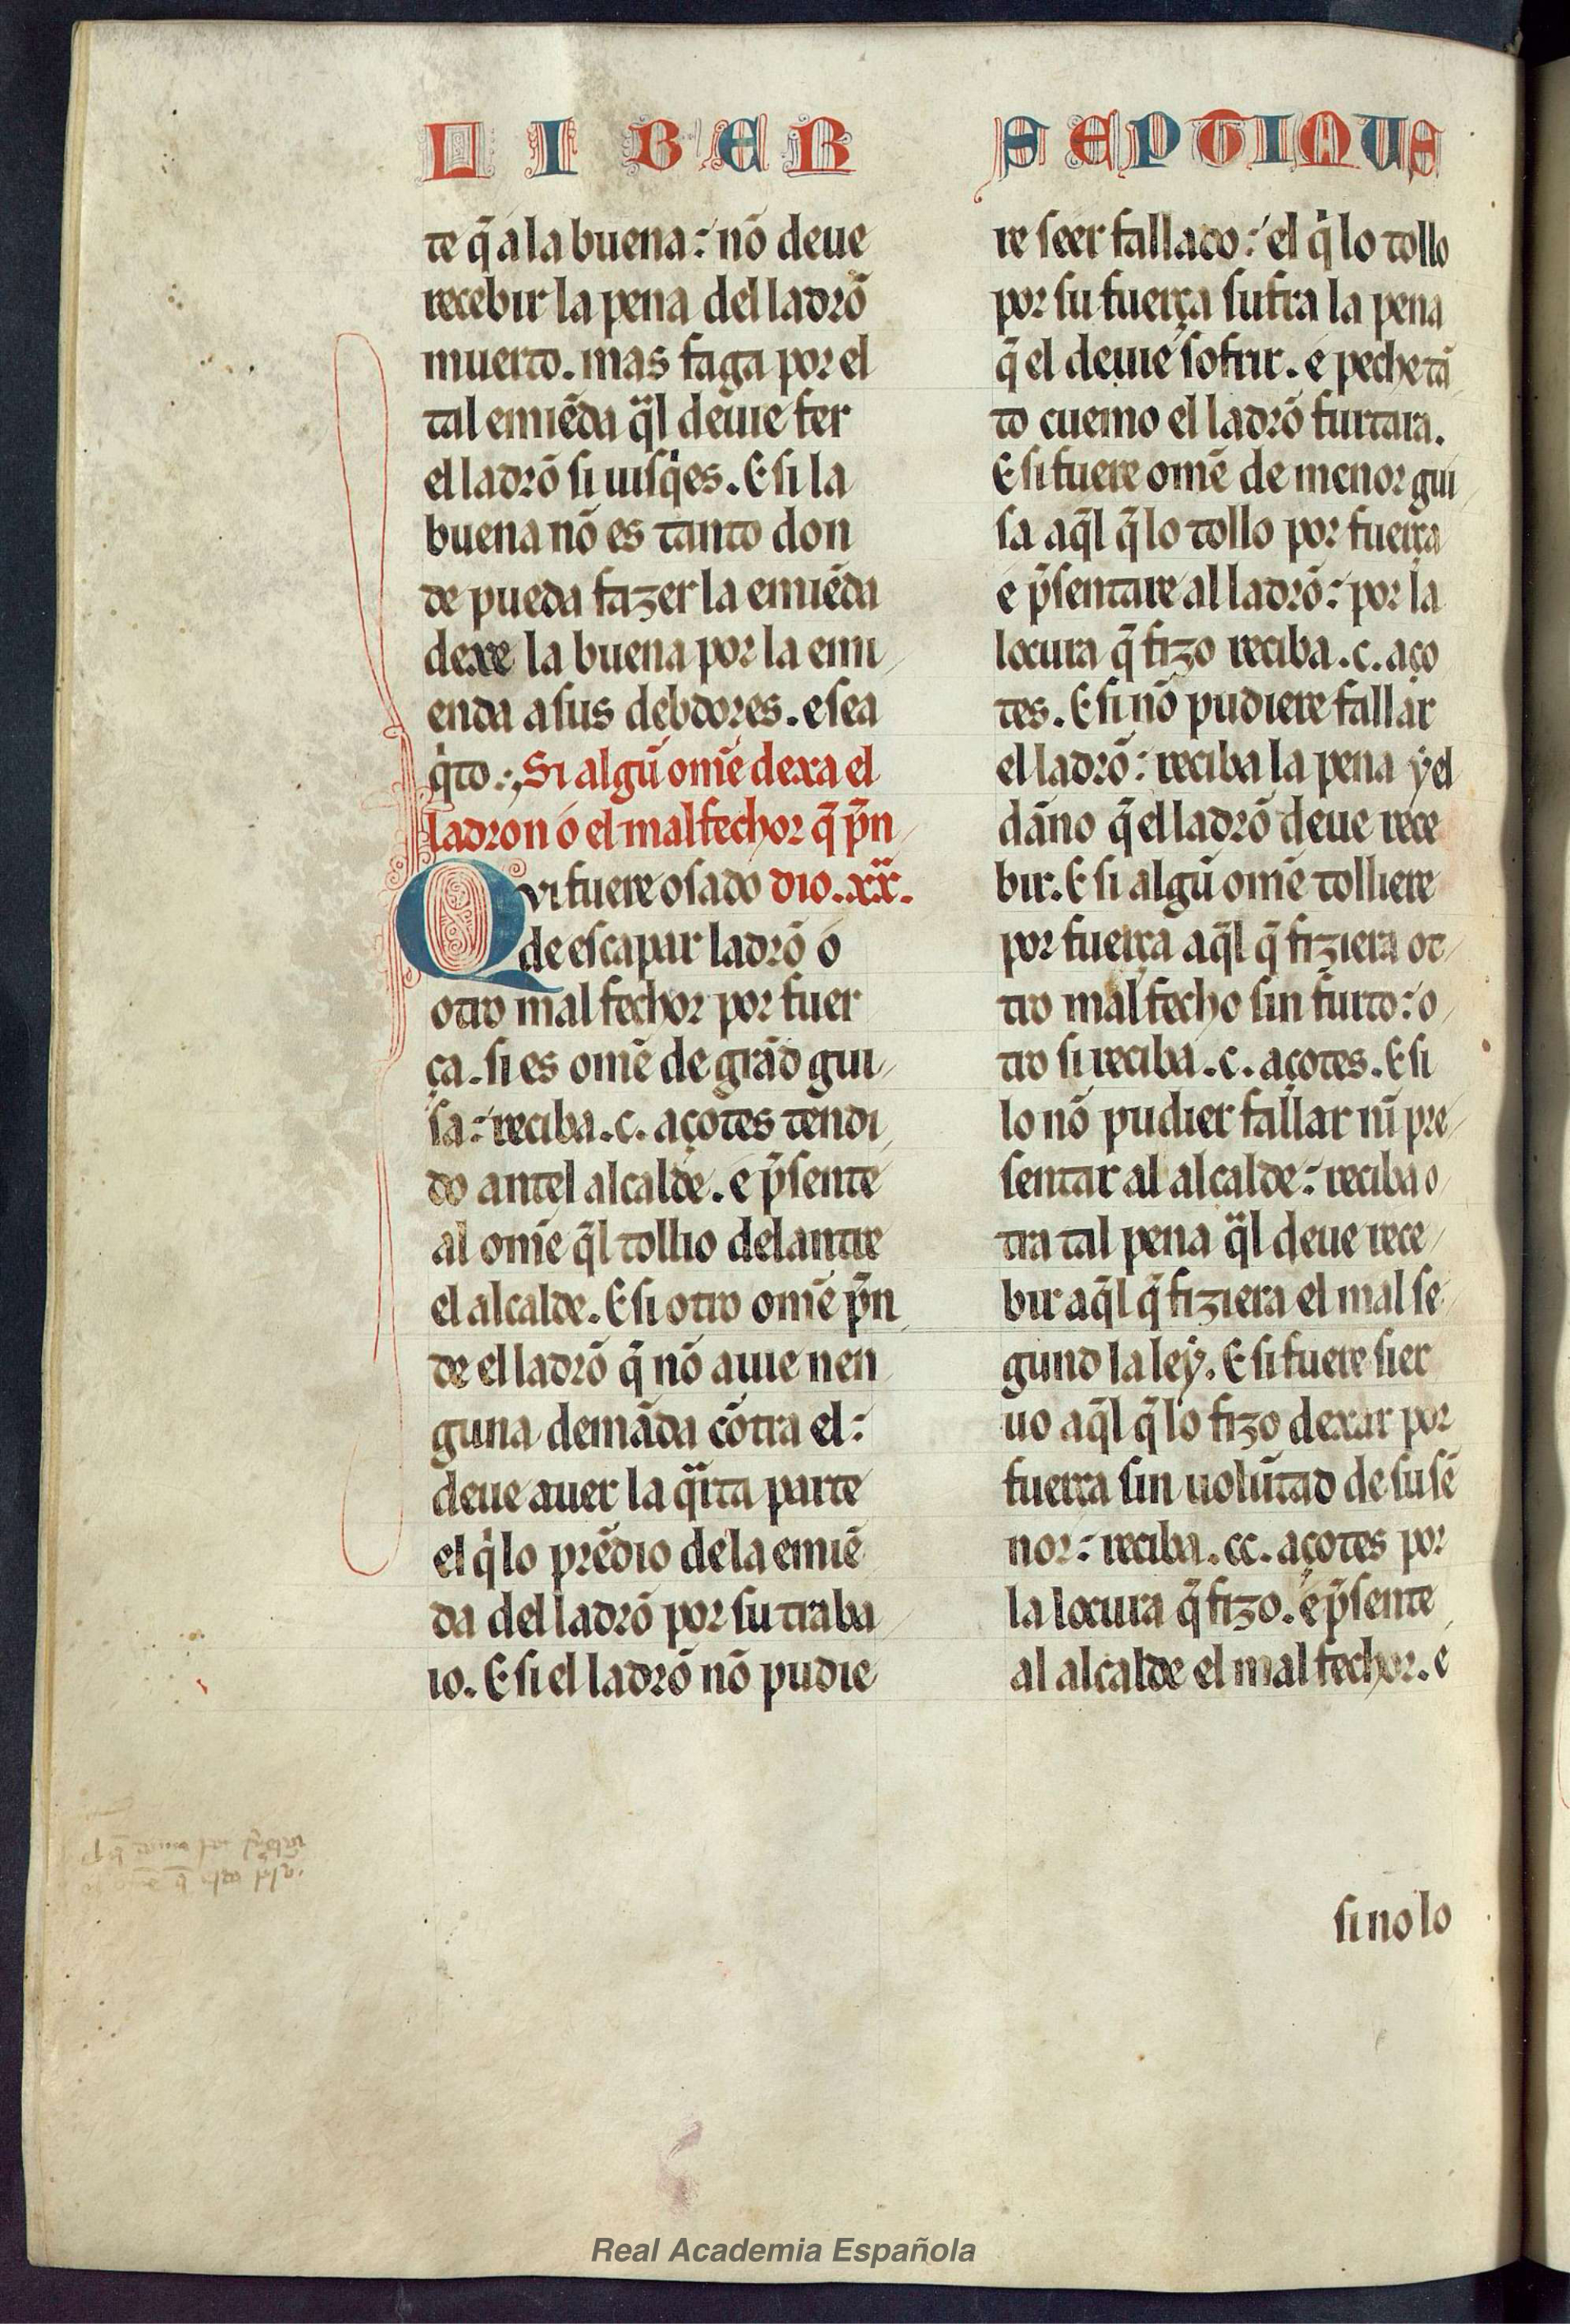 LIBER SEPTIMUS
te q̃ a la buena: nõ deue
recebir la pena del ladrõ
muerto. mas faga por el
tal emiẽda q̈l deuie fer
el ladrõ si uisq̇es. E si la
buena nõ es tanto don
de pueda fazer la emiẽda
dexe la buena por la emi
enda a sus debdores. e sea
q̇to. Si algũ om̃e dexa el
ladron ó el malfechor q̃ p̃n
Qvi fuere osado dio. xx̃.
de escapar ladrõ ó
otro mal fechor por fuer
ça. si es om̃e de grãd gui
sa: reciba .c. açotes tendi
do antel alcalde. e p̃sente
al om̃e q̃l tollio delantre
el alcalde. E si otro om̃e p̃n
de el ladrõ q̃ nõ auie nen
guna demãda cõtra el:
deue auer la q̈rta parte
el q̇ lo prẽdio dela emiẽ
da del ladrõ por su traba
io. E si el ladrõ nõ pudie
re seer fallado: el q̇ lo tollo
por su fuerça sufra la pena
q̃ el deuie sofrir. e peche tã
to cuemo el ladrõ furtara.
E si fuere om̃e de menor gui
sa aq̃l q̃ lo tollo por fuerça
e p̃sentare al ladrõ: por la
locura q̃ fizo reciba .c. aço
tes. E si nõ pudiere fallar
el ladrõ: reciba la pena ẏ el
dãno q̃ el ladrõ deue rece
bir. E si algũ om̃e tolliere
por fuerça aq̃l q̃ fiziera ot
tro mal fecho sin furto: o
tro si reciba .c. açotes. E si
lo nõ pudier fallar nĩ pre
sentar al alcalde: reciba o
tra tal pena q̈l deue rece
bir aq̃l q̃ fiziera el mal se
gund la leẏ. E si fuere sier
uo aq̃l q̃ lo fizo dexar por
fuerça sin uolũtad de su sẽ
nor: reciba .cc. açotes por
la locura q̃ fizo. e p̃sente
al alcalde el mal fechor. e
si no lo
Real Academia Española